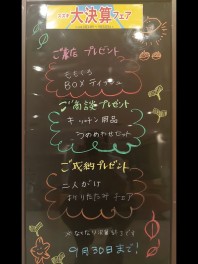 大決算フェア
ご来店プレゼント
ももくろ
BOXティッシュ
ご商談プレゼント
キッチン用品
つめあわせセット
ご成約プレゼント
二人がけ
折りたたみチェア
※なくなり次第終了です
9月30日まで!